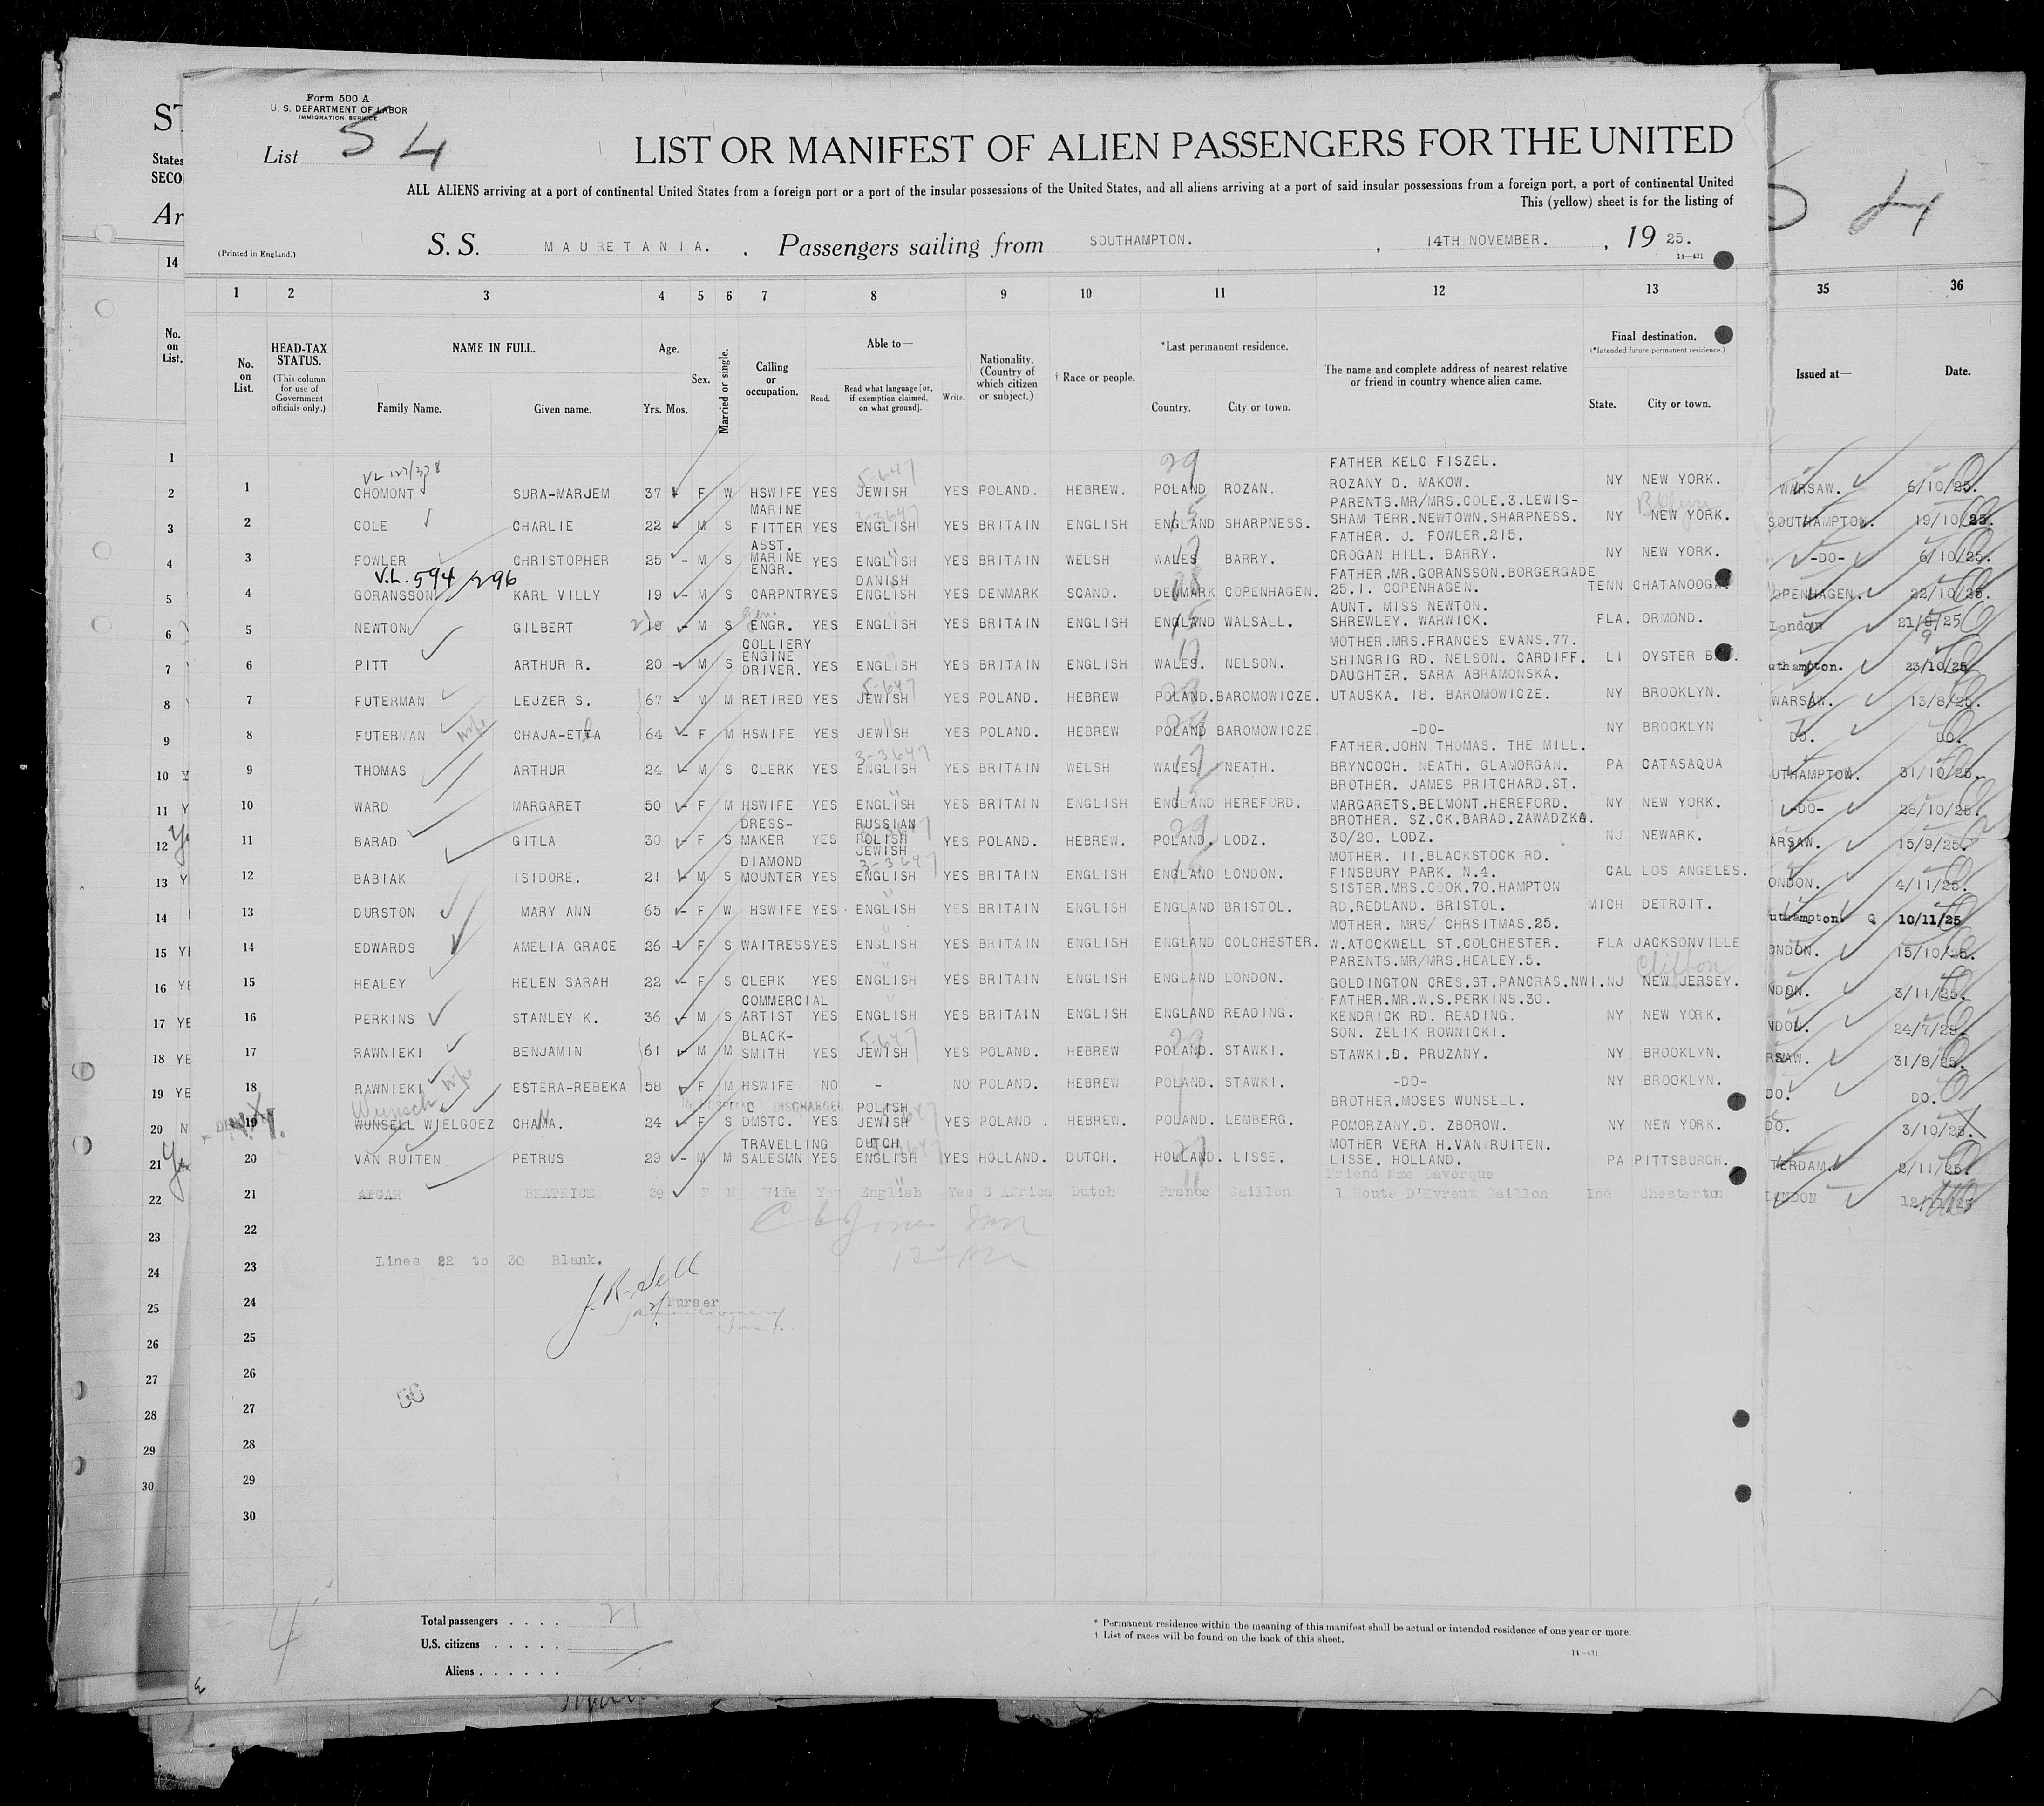 Form 500 A
U. S. DEPARTMENT OF LABOR
IMMIGRATION SERVICE
List 54
LIST OR MANIFEST OF ALIEN PASSENGERS FOR THE UNITED
ALL ALIENS arriving at a port of continental United States from a foreign port or a port of the insular possessions of the United States, and all aliens arriving at a port of said insular possessions from a foreign port, a port of continental United
This (yellow) sheet is for the listing of
(Printed in England.)
S. S. MAURETANIA. , Passengers sailing from SOUTHAMPTON. , 14TH NOVEMBER. , 19 25.
14—431
1 2 3 4 5 6 7 8 9 10 11 12 13 35 36
No. on List.
HEAD-TAX STATUS.
(This column for use of Government officials only.)
NAME IN FULL.
Family Name. Given name.
Age.
Yrs. Mos.
Sex.
Married or single.
Calling or occupation.
Able to—
Read. Read what language [or, if exemption claimed, on what ground]. Write.
Nationality. (Country of which citizen or subject.)
† Race or people.
*Last permanent residence.
Country. City or town.
The name and complete address of nearest relative or friend in country whence alien came.
Final destination.
(*Intended future permanent residence.)
State. City or town.
Issued at— Date.
VL 127/378
1 CHOMONT SURA-MARJEM 37 F W HSWIFE YES JEWISH YES POLAND. HEBREW. POLAND ROZAN. FATHER KELC FISZEL. ROZANY D. MAKOW. NY NEW YORK. WARSAW. 6/10/25.
2 COLE CHARLIE 22 M S MARINE FITTER YES ENGLISH YES BRITAIN ENGLISH ENGLAND SHARPNESS. PARENTS.MR/MRS.COLE.3.LEWIS-SHAM TERR.NEWTOWN.SHARPNESS. NY NEW YORK. SOUTHAMPTON. 19/10/25.
3 FOWLER CHRISTOPHER 25 - M S ASST. MARINE ENGR. YES ENGLISH YES BRITAIN WELSH WALES BARRY. FATHER. J. FOWLER.215. CROGAN HILL. BARRY. NY NEW YORK. -DO- 6/10/25.
V.L. 594/296
4 GORANSSON KARL VILLY 19 - M S CARPNTR YES DANISH ENGLISH YES DENMARK SCAND. DENMARK COPENHAGEN. FATHER.MR.GORANSSON.BORGERGADE 25.1. COPENHAGEN. TENN CHATANOOGA OPENHAGEN. 22/10/25.
5 NEWTON GILBERT 19 - M S ENGR. YES ENGLISH YES BRITAIN ENGLISH ENGLAND WALSALL. AUNT. MISS NEWTON. SHREWLEY. WARWICK. FLA. ORMOND. London 21/9/25
6 PITT ARTHUR R. 20 - M S COLLIERY ENGINE DRIVER. YES ENGLISH YES BRITAIN ENGLISH WALES. NELSON. MOTHER.MRS.FRANCES EVANS.77. SHINGRIG RD. NELSON. CARDIFF. LI OYSTER B uthampton. 23/10/25
7 FUTERMAN LEJZER S. 67 - M M RETIRED YES JEWISH YES POLAND. HEBREW POLAND. BAROMOWICZE. DAUGHTER. SARA ABRAMONSKA. UTAUSKA. 18. BAROMOWICZE. NY BROOKLYN. WARSAW. 13/8/25.
8 FUTERMAN wife CHAJA-ETKA 64 - F M HSWIFE YES JEWISH YES POLAND. HEBREW POLAND BAROMOWICZE. -DO- NY BROOKLYN DO. DO.
9 THOMAS ARTHUR 24 - M S CLERK YES ENGLISH YES BRITAIN WELSH WALES NEATH. FATHER.JOHN THOMAS. THE MILL. BRYNCOCH. NEATH. GLAMORGAN. PA CATASAQUA UTHAMPTON. 31/10/25.
10 WARD MARGARET 50 - F M HSWIFE YES ENGLISH YES BRITAIN ENGLISH ENGLAND HEREFORD. BROTHER. JAMES PRITCHARD.ST. MARGARETS.BELMONT.HEREFORD. NY NEW YORK. -DO- 28/10/25.
11 BARAD GITLA 30 - F S DRESS-MAKER YES RUSSIAN POLISH JEWISH YES POLAND. HEBREW. POLAND. LODZ. BROTHER. SZ.CK.BARAD.ZAWADZKA. 30/20. LODZ. NJ NEWARK. ARSAW. 15/9/25.
12 BABIAK ISIDORE. 21 - M S DIAMOND MOUNTER YES ENGLISH YES BRITAIN ENGLISH ENGLAND LONDON. MOTHER. 11.BLACKSTOCK RD. FINSBURY PARK. N.4. CAL LOS ANGELES. ONDON. 4/11/25.
13 DURSTON MARY ANN 65 - F W HSWIFE YES ENGLISH YES BRITAIN ENGLISH ENGLAND BRISTOL. SISTER.MRS.COOK.70.HAMPTON RD.REDLAND. BRISTOL. MICH DETROIT. uthampton. 10/11/25
14 EDWARDS AMELIA GRACE 26 - F S WAITRESS YES ENGLISH YES BRITAIN ENGLISH ENGLAND COLCHESTER. MOTHER. MRS/ CHRSITMAS.25. W.ATOCKWELL ST.COLCHESTER. FLA JACKSONVILLE ONDON. 15/10/25.
15 HEALEY HELEN SARAH 22 - F S CLERK YES ENGLISH YES BRITAIN ENGLISH ENGLAND LONDON. PARENTS.MR/MRS.HEALEY.5. GOLDINGTON CRES.ST.PANCRAS.NW1. NJ Clifton NEW JERSEY. NDON. 3/11/25.
16 PERKINS STANLEY K. 36 - M S COMMERCIAL ARTIST YES ENGLISH YES BRITAIN ENGLISH ENGLAND READING. FATHER.MR.W.S.PERKINS.30. KENDRICK RD. READING. NY NEW YORK. NDON. 24/7/25.
17 RAWNIEKI BENJAMIN 61 M M BLACK-SMITH YES JEWISH YES POLAND. HEBREW POLAND. STAWKI. SON. ZELIK ROWNICKI. STAWKI.D. PRUZANY. NY BROOKLYN. RSAW. 31/8/25.
18 RAWNIEKI wife ESTERA-REBEKA 58 F M HSWIFE NO - NO POLAND. HEBREW POLAND. STAWKI. -DO- NY BROOKLYN. DO. DO.
IN HOSPITAL DISCHARGED
Wunsch
19 WUNSELL WIELGOEZ CHANA. 24 - F S DMSTC. YES POLISH JEWISH YES POLAND. HEBREW. POLAND. LEMBERG. BROTHER.MOSES WUNSELL. POMORZANY.D. ZBOROW. NY NEW YORK. DO. 3/10/25.
20 VAN RUITEN PETRUS 29 - M M TRAVELLING SALESMN YES DUTCH ENGLISH YES HOLLAND. DUTCH. HOLLAND. LISSE. MOTHER VERA H.VAN RUITEN. LISSE. HOLLAND. PA PITTSBURGH. TERDAM. 2/11/25.
21 APGAR BEATRICE 39 F M Wife Yes English Yes S Africa Dutch France Gaillon Friend Mme Davorque 1 Route D'Evreux Gaillon Ind Chesterton LONDON
22
23 Lines 22 to 30 Blank.
24 Purser
25
26
27
28
29
30
Total passengers . . . . 21
U.S. citizens . . . . .
Aliens . . . . . .
* Permanent residence within the meaning of this manifest shall be actual or intended residence of one year or more.
† List of races will be found on the back of this sheet.
14—431